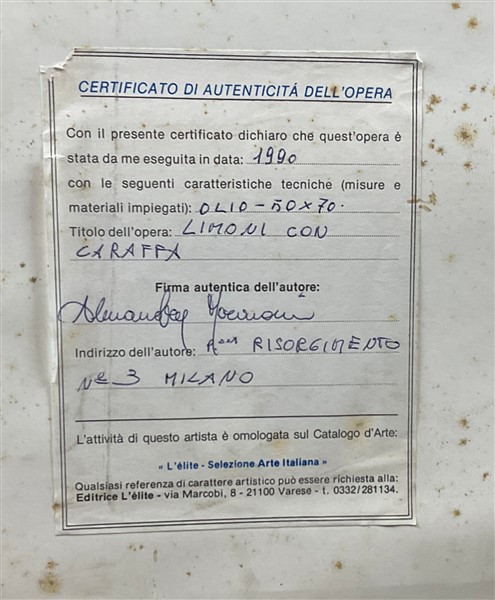 CERTIFICATO DI AUTENTICITÁ DELL'OPERA
Con il presente certificato dichiaro che quest'opera è
stata da me eseguita in data: 1990
con le seguenti caratteristiche tecniche (misure e
materiali impiegati): OLIO - 50 x 70.
Titolo dell'opera: LIMONI CON
CARAFFA
Firma autentica dell'autore:
Indirizzo dell'autore: RISORGIMENTO
N° 3 MILANO
L'attività di questo artista è omologata sul Catalogo d'Arte:
« L'élite - Selezione Arte Italiana »
Qualsiasi referenza di carattere artistico può essere richiesta alla:
Editrice L'élite - via Marcobi, 8 - 21100 Varese - t. 0332/281134.